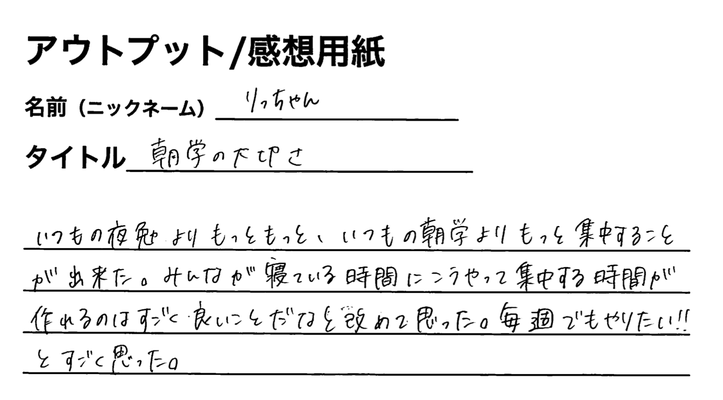 アウトプット/感想用紙
名前（ニックネーム） りっちゃん
タイトル 朝学の大切さ
いつもの夜勉よりもっともっと、いつもの朝学よりもっと集中すること
が出来た。みんなが寝ている時間にこうやって集中する時間が
作れるのはすごく良いことだなと改めて思った。毎週でもやりたい!!
とすごく思った。